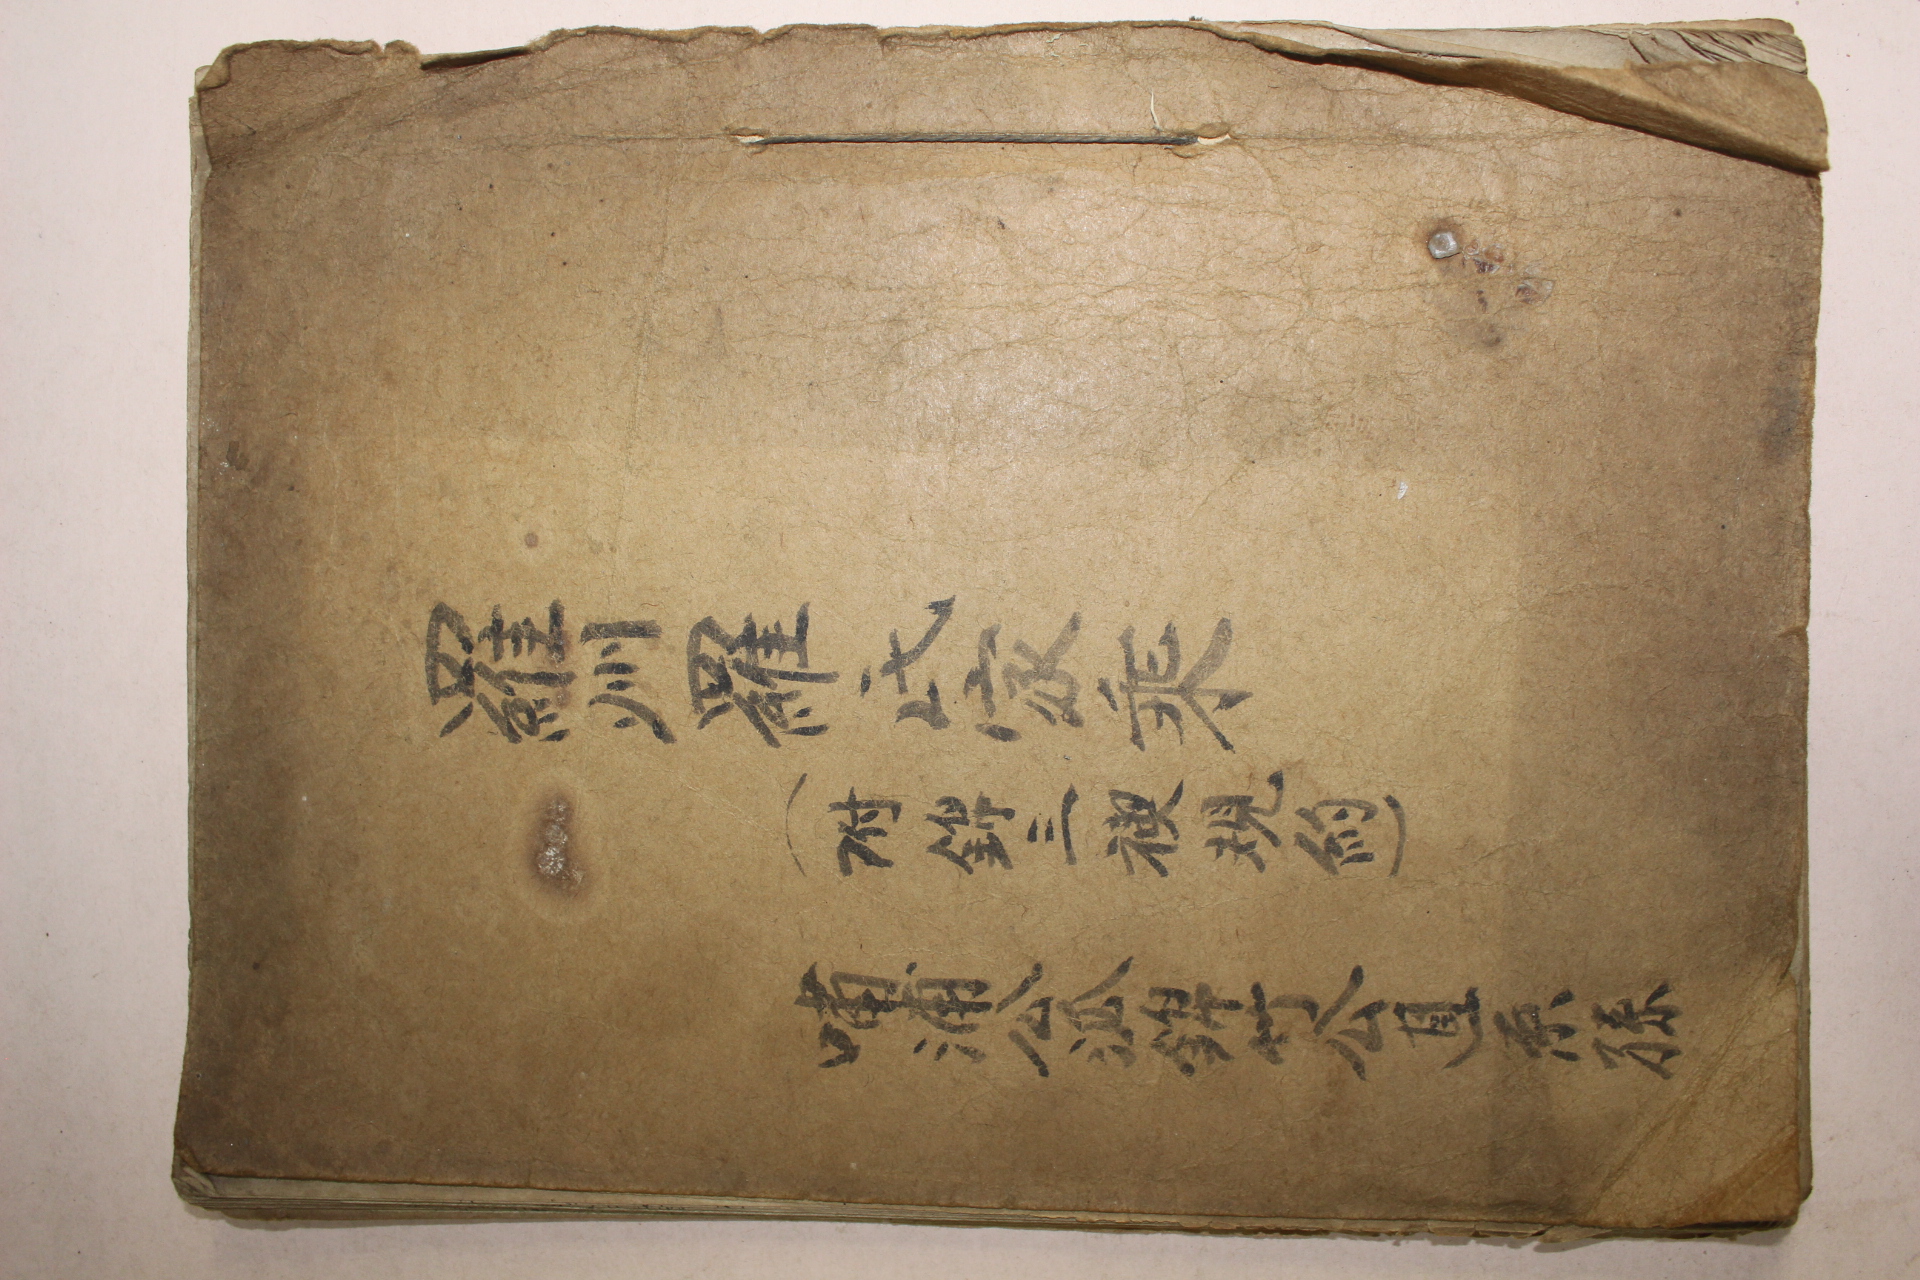 羅州羅氏家乘
(附錦三禊規約)
嘯浦公派錦竹公直系孫